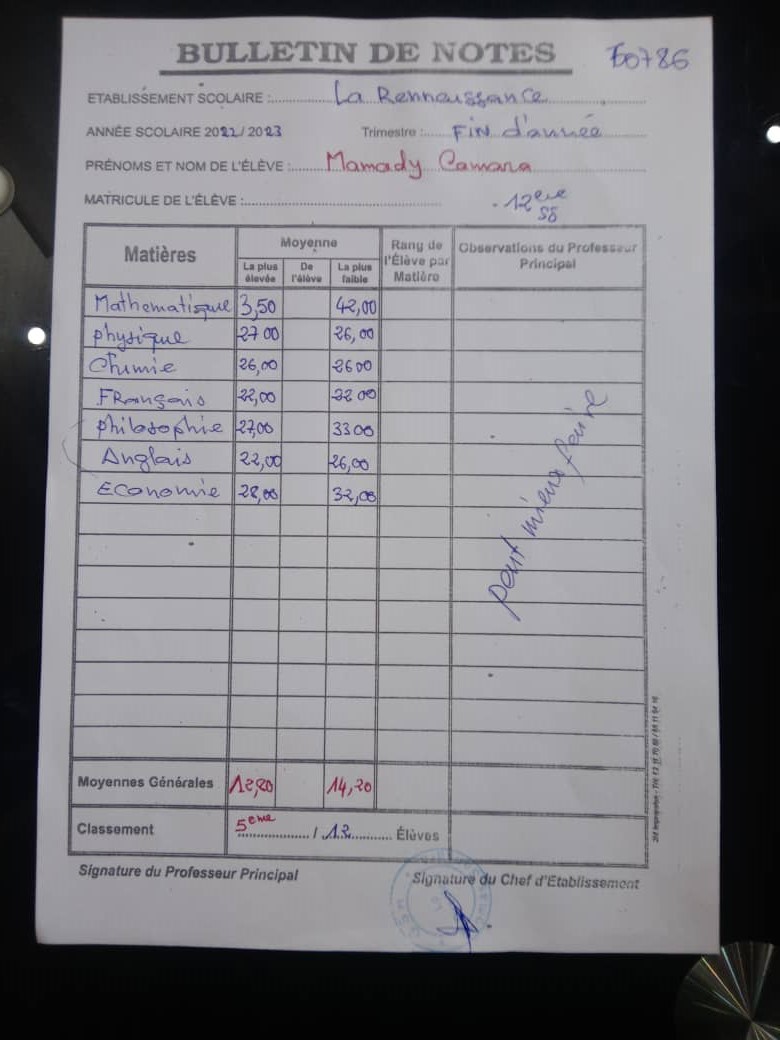 BULLETIN DE NOTES T00786
ETABLISSEMENT SCOLAIRE : La Rennaissance
ANNÉE SCOLAIRE 2022/2023 Trimestre : FIN d'année
PRÉNOMS ET NOM DE L'ÉLÈVE : Mamady Camara
MATRICULE DE L'ÉLÈVE : 12ème
Matières Moyenne Rang de l'Élève par Matière Observations du Professeur Principal
La plus élevée De l'élève La plus faible
Mathematique 3,50 42,00
physique 27 00 26,00
Chimie 26,00 26 00
FRançais 22,00 22 00
philosophie 27,00 33 00
Anglais 22,00 26,00
Economie 28,00 32,00
peut mieux faire
Moyennes Générales 12,20 14,20
Classement 5ème / 12 Élèves
Signature du Professeur Principal Signature du Chef d'Etablissement